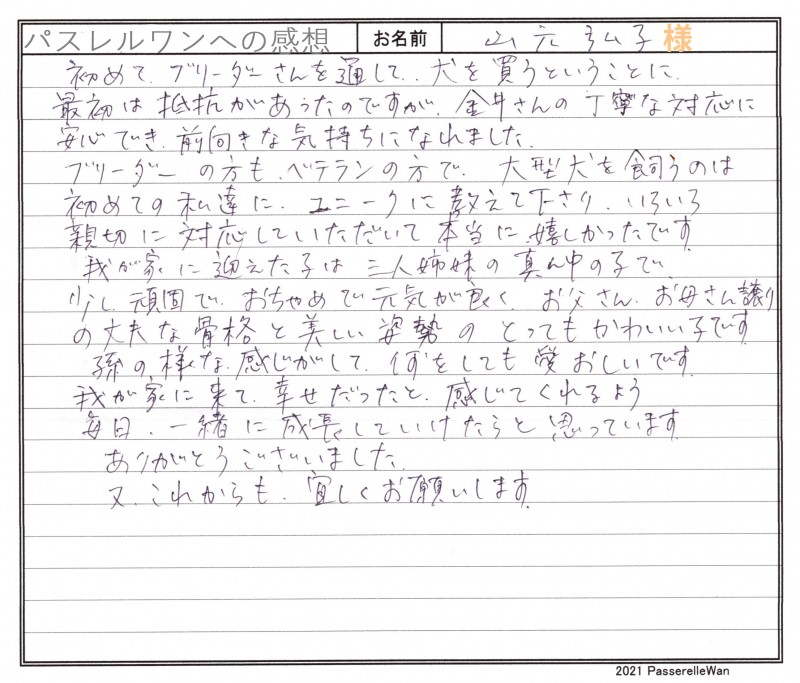 パスレルワンへの感想 お名前 山元弘子様
初めて、ブリーダーさんを通して、犬を買うということに、
最初は抵抗があったのですが、金井さんの丁寧な対応に
安心でき、前向きな気持ちになれました。
ブリーダーの方も、ベテランの方で、大型犬を飼うのは
初めての私達に、ユニークに教えて下さり、いろいろ
親切に対応していただいて本当に嬉しかったです。
我が家に迎えた子は三人姉妹の真ん中の子で、
少し頑固で、おちゃめで元気が良く、お父さん、お母さん譲り
の丈夫な骨格と美しい姿勢のとってもかわいい子です。
孫の様な感じがして、何をしても愛おしいです。
我が家に来て、幸せだったと、感じてくれるよう
毎日、一緒に成長していけたらと思っています。
ありがとうございました。
又、これからも、宜しくお願いします。
2021 PasserelleWan